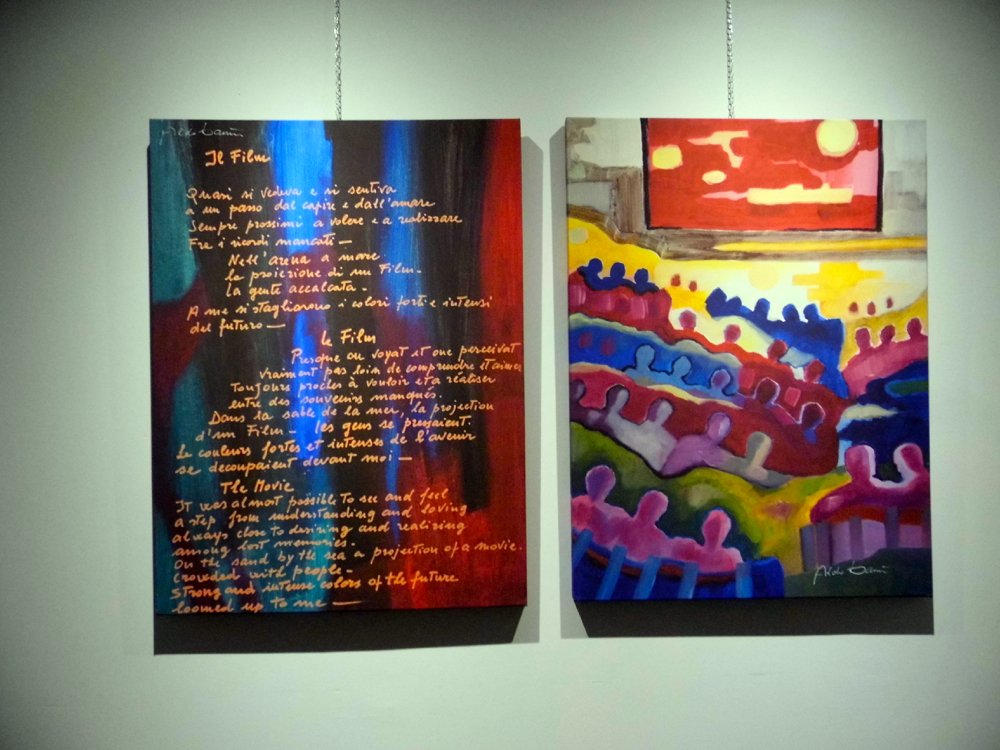 Aldo
Il Film
Quasi si vedeva e si sentiva
a un passo dal capire e dall'amare
Sempre prossimi a volere e a realizzare
Fra i ricordi mancati —
Nell'arena a mare
la proiezione di un Film -
la gente accalcata -
A me si stagliarono i colori forti e intensi
del futuro —
Le Film
Presque on voyait et one percevait
vraiment pas loin de comprendre et aimer
Toujours proches à vouloir et a réaliser
entre des souvenirs manqués.
Dans la sable de la mer, la projection
d'un Film - les gens se pressaient.
Le couleurs fortes et intenses de l'avenir
se decoupaient devant moi —
The Movie
It was almost possible to see and feel
a step from understanding and loving
always close to desiring and realizing
among lost memories.
On the sand by the sea a projection of a movie.
Crowded with people -
Strong and intense colors of the future
loomed up to me —
Aldo